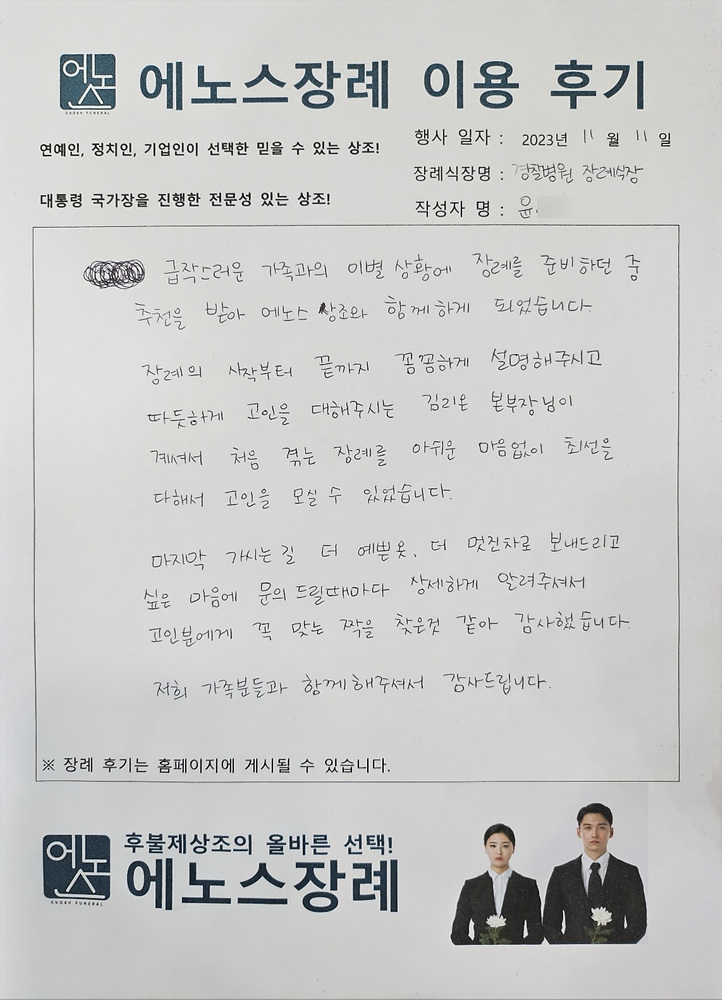 에노스
ENOSH FUNERAL
에노스장례 이용 후기
연예인, 정치인, 기업인이 선택한 믿을 수 있는 상조!
대통령 국가장을 진행한 전문성 있는 상조!
행사 일자 : 2023년 11 월 11 일
장례식장명 : 경찰병원 장례식장
작성자 명 : 윤
급작스러운 가족과의 이별 상황에 장례를 준비하던 중
추천을 받아 에노스 상조와 함께하게 되었습니다.
장례의 시작부터 끝까지 꼼꼼하게 설명해주시고
따듯하게 고인을 대해주시는 김리온 본부장님이
계셔서 처음 겪는 장례를 아쉬운 마음없이 최선을
다해서 고인을 모실 수 있었습니다.
마지막 가시는길 더 예쁜옷, 더 멋진차로 보내드리고
싶은 마음에 문의 드릴때마다 상세하게 알려주셔서
고인분에게 꼭 맞는 짝을 찾은것 같아 감사했습니다.
저희 가족분들과 함께해주셔서 감사드립니다.
※ 장례 후기는 홈페이지에 게시될 수 있습니다.
에노스
ENOSH FUNERAL
후불제상조의 올바른 선택!
에노스장례